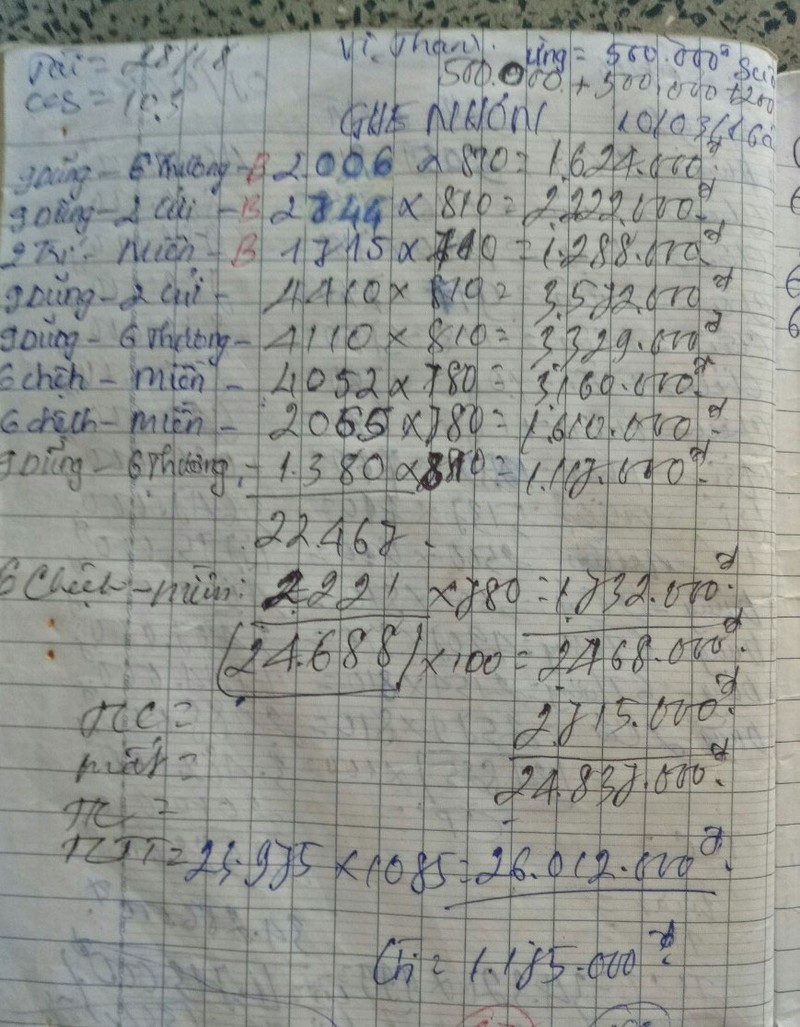 ứng = 500.000đ
500.000 + 500.000 + 200
GHE NHƠN 1010361160
9 Dũng - 6 Thương - B 2006 x 810 = 1.624.000đ
9 Dũng - 2 Cúi - B 2744 x 810 = 2.222.000đ
miền - B 1715 x = 1.288.000đ
9 Dũng - 2 Cúi - 4410 x 810 = 3.572.000đ
9 Dũng - 6 Thương - 4110 x 810 = 3.329.000đ
6 chệch - miền - 4052 x 780 = 3.160.000đ
6 chệch - miền - 2065 x 780 = 1.610.000đ
9 Dũng - 6 Thương - 1.380 x 810 = 1.117.000đ
22.467
6 Chệch - miền: 2221 x 780 = 1.732.000đ
(24.688) x 100 = 2.468.000đ
2.715.000đ
24.837.000đ
23.975 x 1085 = 26.012.000đ
= 1.185.000đ